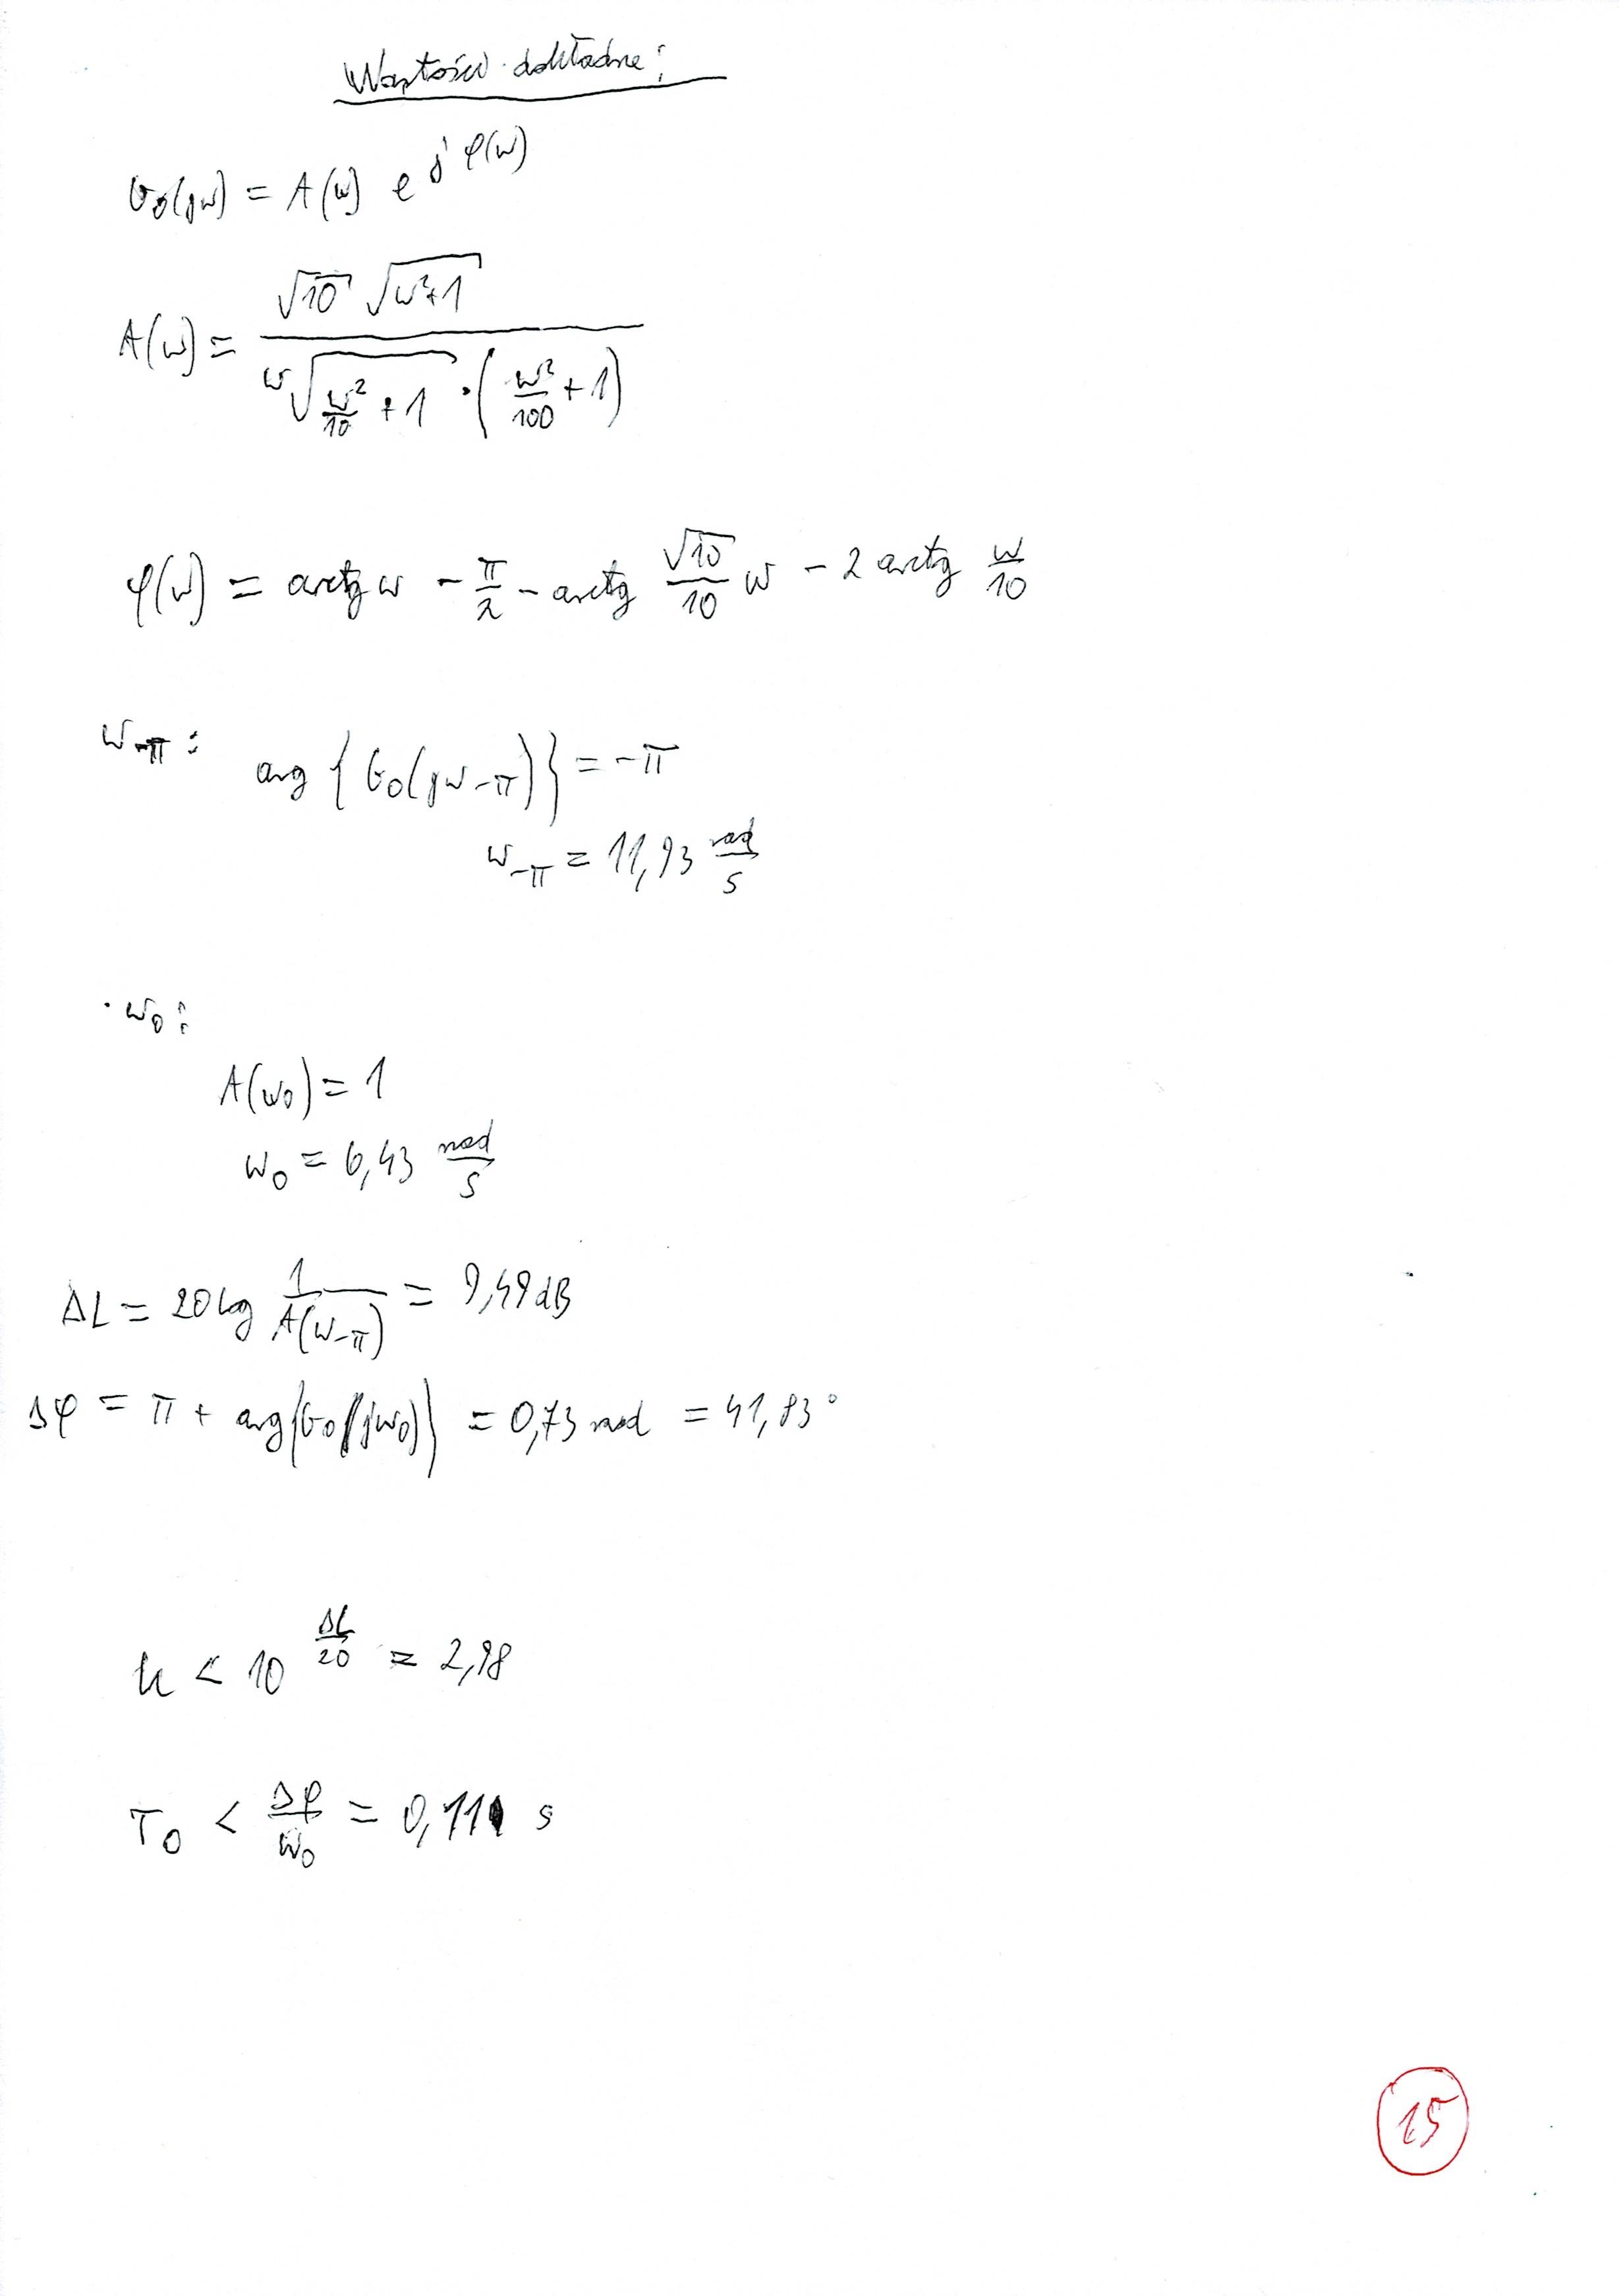 Wartości dokładne:
G₀(jω) = A(ω) e^{jφ(ω)}
A(ω) = \frac{√10 √(ω²+1)}{ω √(\frac{ω²}{10} + 1) · (\frac{ω²}{100} + 1)}
φ(ω) = arctg ω - \frac{π}{2} - arctg \frac{√10}{10} ω - 2 arctg \frac{ω}{10}
ω₋π :
arg {G₀(jω₋π)} = -π
ω₋π = 11,93 \frac{rad}{s}
ω₀ :
A(ω₀) = 1
ω₀ = 6,43 \frac{rad}{s}
ΔL = 20 log \frac{1}{A(ω₋π)} = 9,49 dB
Δφ = π + arg{G₀(jω₀)} = 0,73 rad = 41,83°
k < 10^{\frac{ΔL}{20}} = 2,98
T₀ < \frac{Δφ}{ω₀} = 0,111 s
15